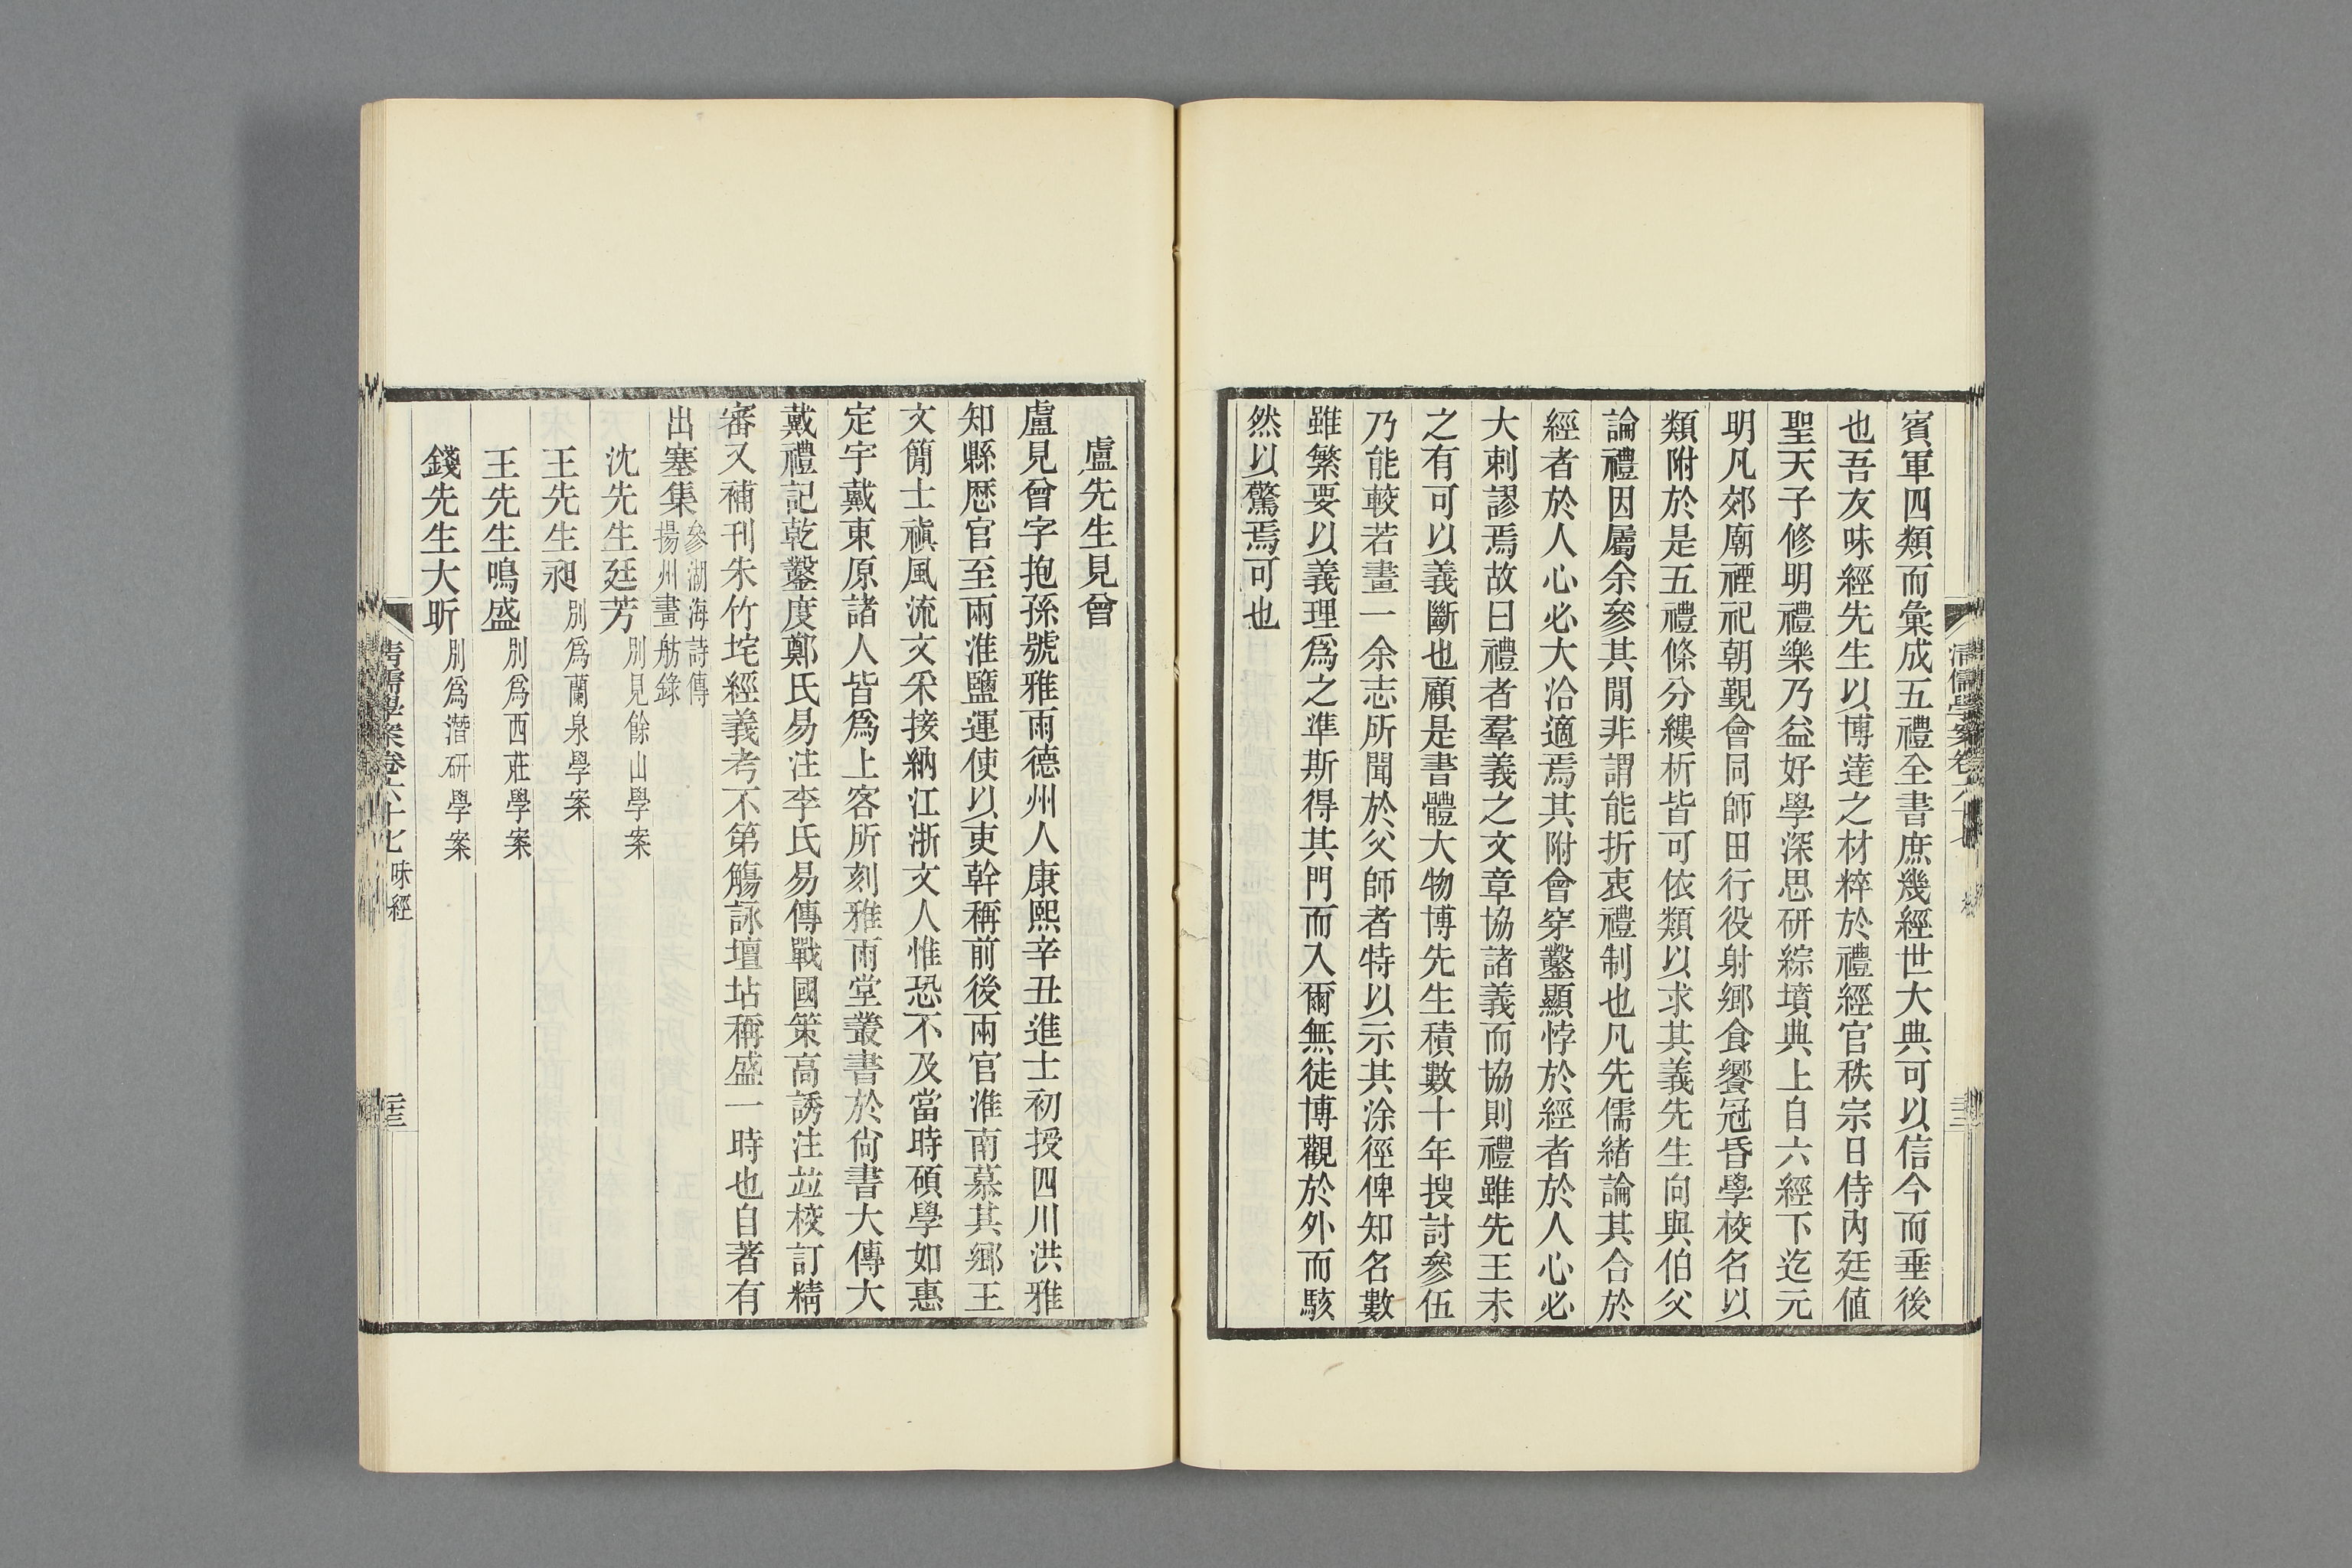 賓軍四類而彙成五禮全書庶幾經世大典可以信今而垂後
也吾友味經先生以博達之材粹於禮經官秩宗日侍內廷値
聖天子修明禮樂乃益好學深思硏綜墳典上自六經下迄元
明凡郊廟禋祀朝覲會同師田行役射鄉食饗冠昏學校名以
類附於是五禮條分縷析皆可依類以求其義先生向與伯父
論禮因屬余參其閒非謂能折衷禮制也凡先儒緒論其合於
經者於人心必大洽適焉其附會穿鑿顯悖於經者於人心必
大刺謬焉故曰禮者羣義之文章協諸義而協則禮雖先王未
之有可以義斷也顧是書體大物博先生積數十年搜討參伍
乃能較若畫一余志所聞於父師者特以示其涂徑俾知名數
雖繁要以義理爲之準斯得其門而入爾無徒博觀於外而駭
然以驚焉可也
盧先生見曾
盧見曾字抱孫號雅雨德州人康熙辛丑進士初授四川洪雅
知縣歷官至兩淮鹽運使以吏幹稱前後兩官淮南慕其鄉王
文簡士禛風流文采接納江浙文人惟恐不及當時碩學如惠
定宇戴東原諸人皆爲上客所刻雅雨堂叢書於尙書大傳大
戴禮記乾鑿度鄭氏易注李氏易傳戰國策高誘注並校訂精
審又補刊朱竹垞經義考不第觴詠壇坫稱盛一時也自著有
出塞集參湖海詩傳
揚州畫舫錄
沈先生廷芳別見餘山學案
王先生昶別爲蘭泉學案
王先生鳴盛別爲西莊學案
錢先生大昕別爲潛研學案
清儒學案卷六十七 味經